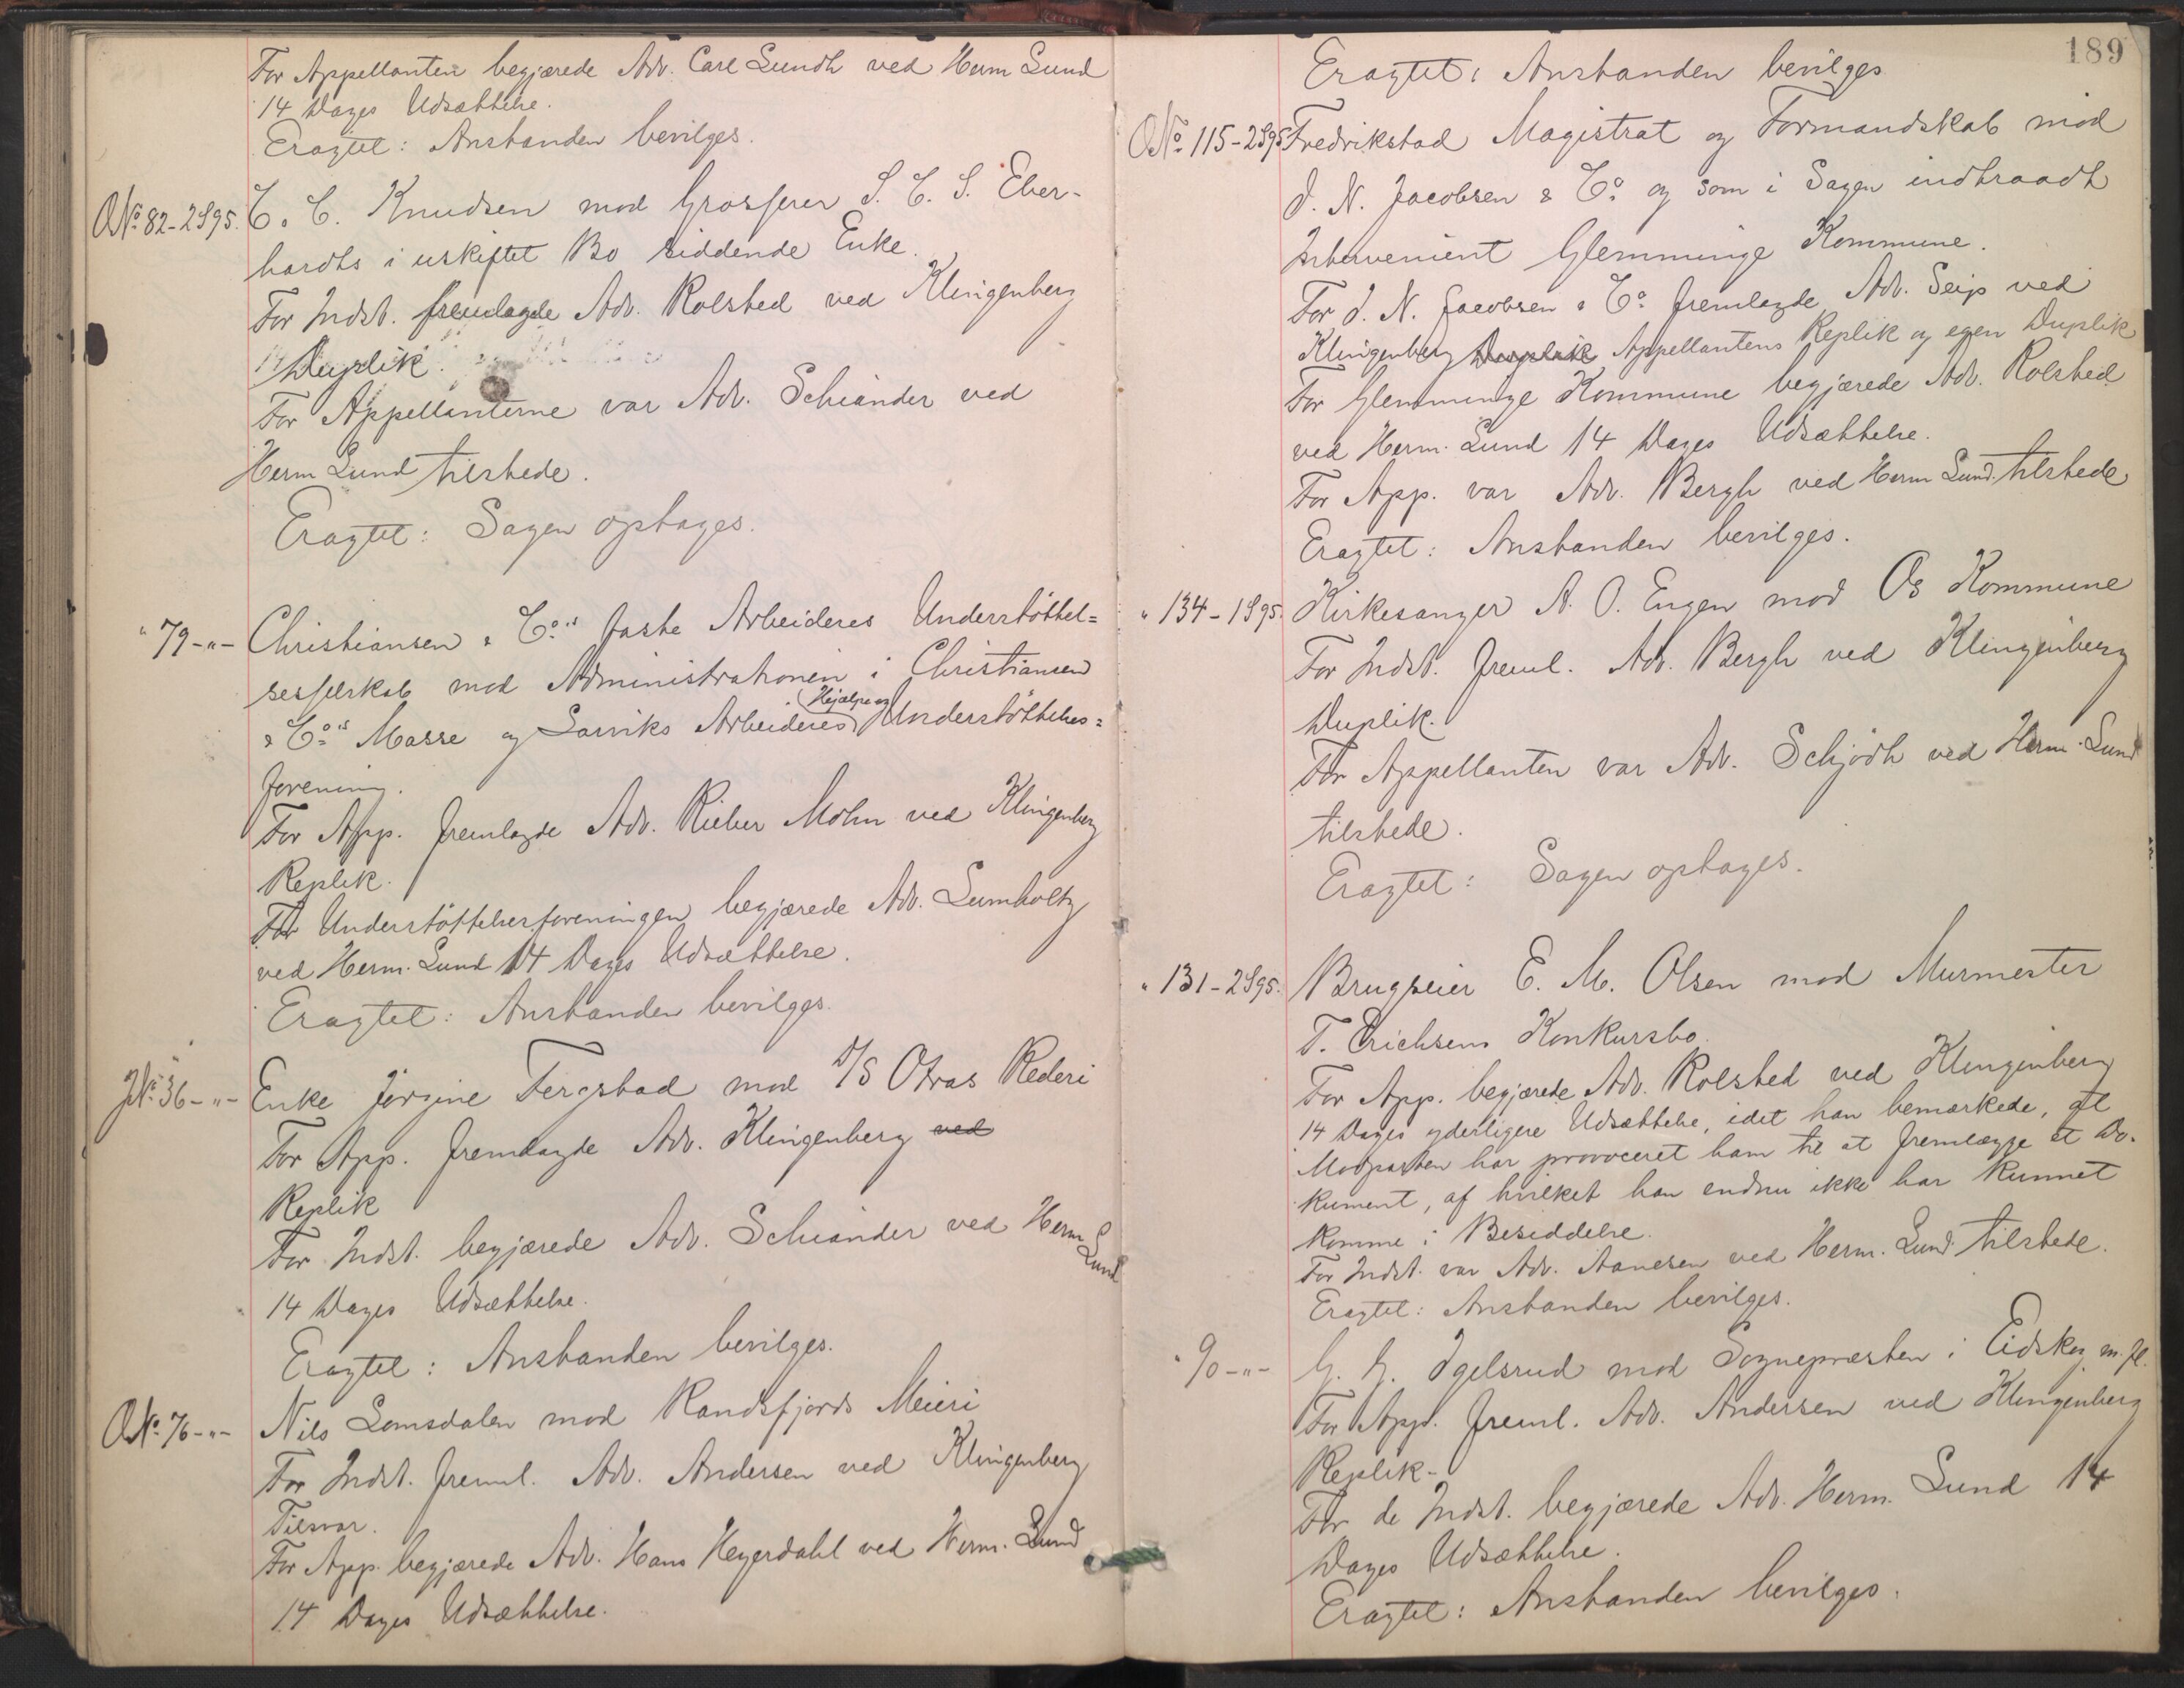 For Appellanten begjærede Adv. Carl Lundh ved Herm Lund
14 Dages Udsættelse.
Eragtet: Anstanden bevilges.
O№ 82-2S95. C. C. Knudsen mod Grosserer S. C. S. Eber-
hardts i uskiftet Bo siddende Enke.
For Indst. fremlagde Adv. Rolsted ved Klingenberg
Duplik.
For Appellanterne var Adv. Schiander ved
Herm Lund tilstede.
Eragtet: Sagen optages.
" 79-"- Christiansen & Co.s faste Arbeideres Understöttel=
sesselskab mod Administrationen i Christiansen
& Co.s Masse og Larviks Arbeideres Hjælpe og Understöttelses=
forening.
For App. fremlagde Adv. Rieber Mohn ved Klingenberg
Replik.
For Understöttelsesforeningen begjærede Adv. Lumholtz
ved Herm. Lund 14 Dages Udsættelse.
Eragtet: Anstanden bevilges.
J№ 36-"- Enke Jörgine Fergstad mod D/S Otras Rederi
For App. fremlagde Adv. Klingenberg ved
Replik
For Indst. begjærede Adv. Schiander ved Herm Lund
14 Dages Udsættelse.
Eragtet: Anstanden bevilges.
O№ 76-"- Nils Lomsdalen mod Randsfjords Meieri
For Indst. freml. Adv. Andersen ved Klingenberg
Tilsvar.
For App. begjærede Adv. Hans Heyerdahl ved Herm. Lund
14 Dages Udsættelse.
189
Eragtet: Anstanden bevilges
O№ 115-2S95 Fredrikstad Magistrat og Formandskab mod
J. N. Jacobsen & Co. og som i Sagen indtraadt
Intervenient Glemminge Kommune.
For J. N. Jacobsen & Co. fremlagde Adv. Seip ved
Klingenberg Duplik Appellantens Replik og egen Duplik
For Glemminge Kommune begjærede Adv. Rolsted
ved Herm. Lund 14 Dages Udsættelse.
For App. var Adv. Bergh ved Herm Lund tilstede
Eragtet: Anstanden bevilges.
" 134-1S95. Kirkesanger A. O. Engen mod Os Kommune
For Indst. freml. Adv. Bergh ved Klingenberg
Duplik.
For Appellanten var Adv. Schjödt ved Herm. Lund
tilstede.
Eragtet: Sagen optages.
" 131-2S95. Brugseier E. M. Olsen mod Murmester
T. Erichsens Konkursbo.
For App. begjærede Adv. Rolsted ved Klingenberg
14 Dages yderligere Udsættelse, idet han bemærkede, at
Modparten har provoceret ham til at fremlægge et Do-
kument, af hvilket han endnu ikke har kunnet
komme i Besiddelse.
For Indst. var Adv. Aanesen ved Herm. Lund tilstede.
Eragtet: Anstanden bevilges.
" 90-"- G. G. Igelsrud mod Sognepræsten i Eidskog m. fl.
For App. freml. Adv. Andersen ved Klingenberg
Replik-
For de Indst. begjærede Adv. Herm. Lund 14
Dages Udsættelse.
Eragtet: Anstanden bevilges.